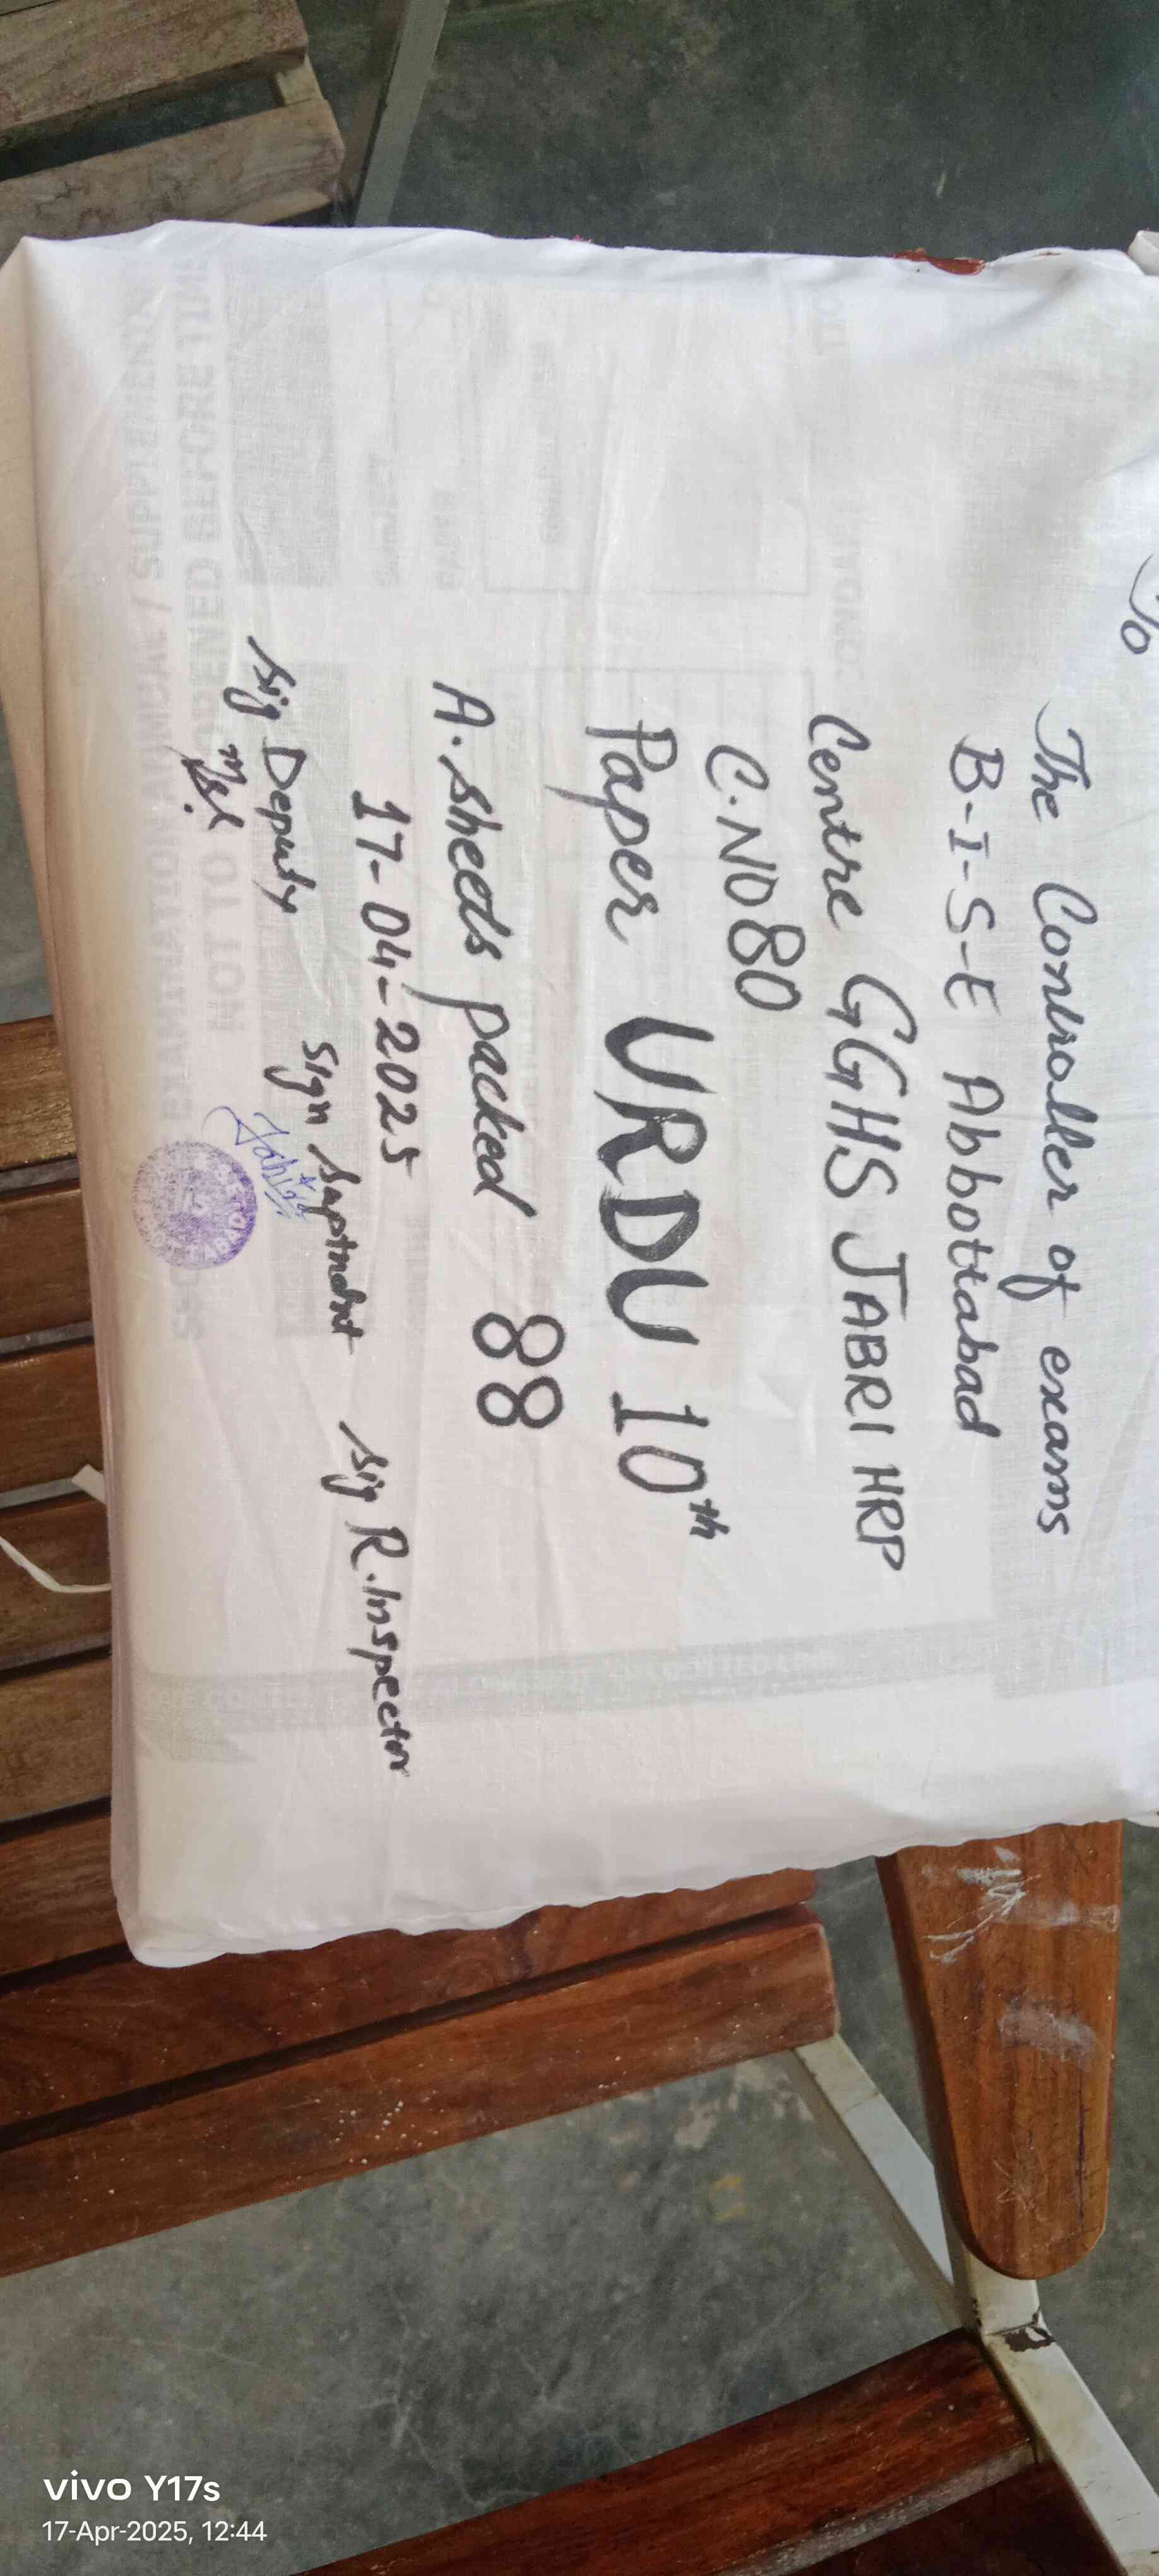 The Controller of exams
B-I-S-E Abbottabad
Centre GGHS JABRI HRP
C.NO 80
Paper URDU 10th
A.sheets packed 88
17-04-2025
Sig Deputy
Sign Suptndnt
Sig R.Inspector
NOT TO OPENED BEFORE TIME
vivo Y17s
17-Apr-2025, 12:44